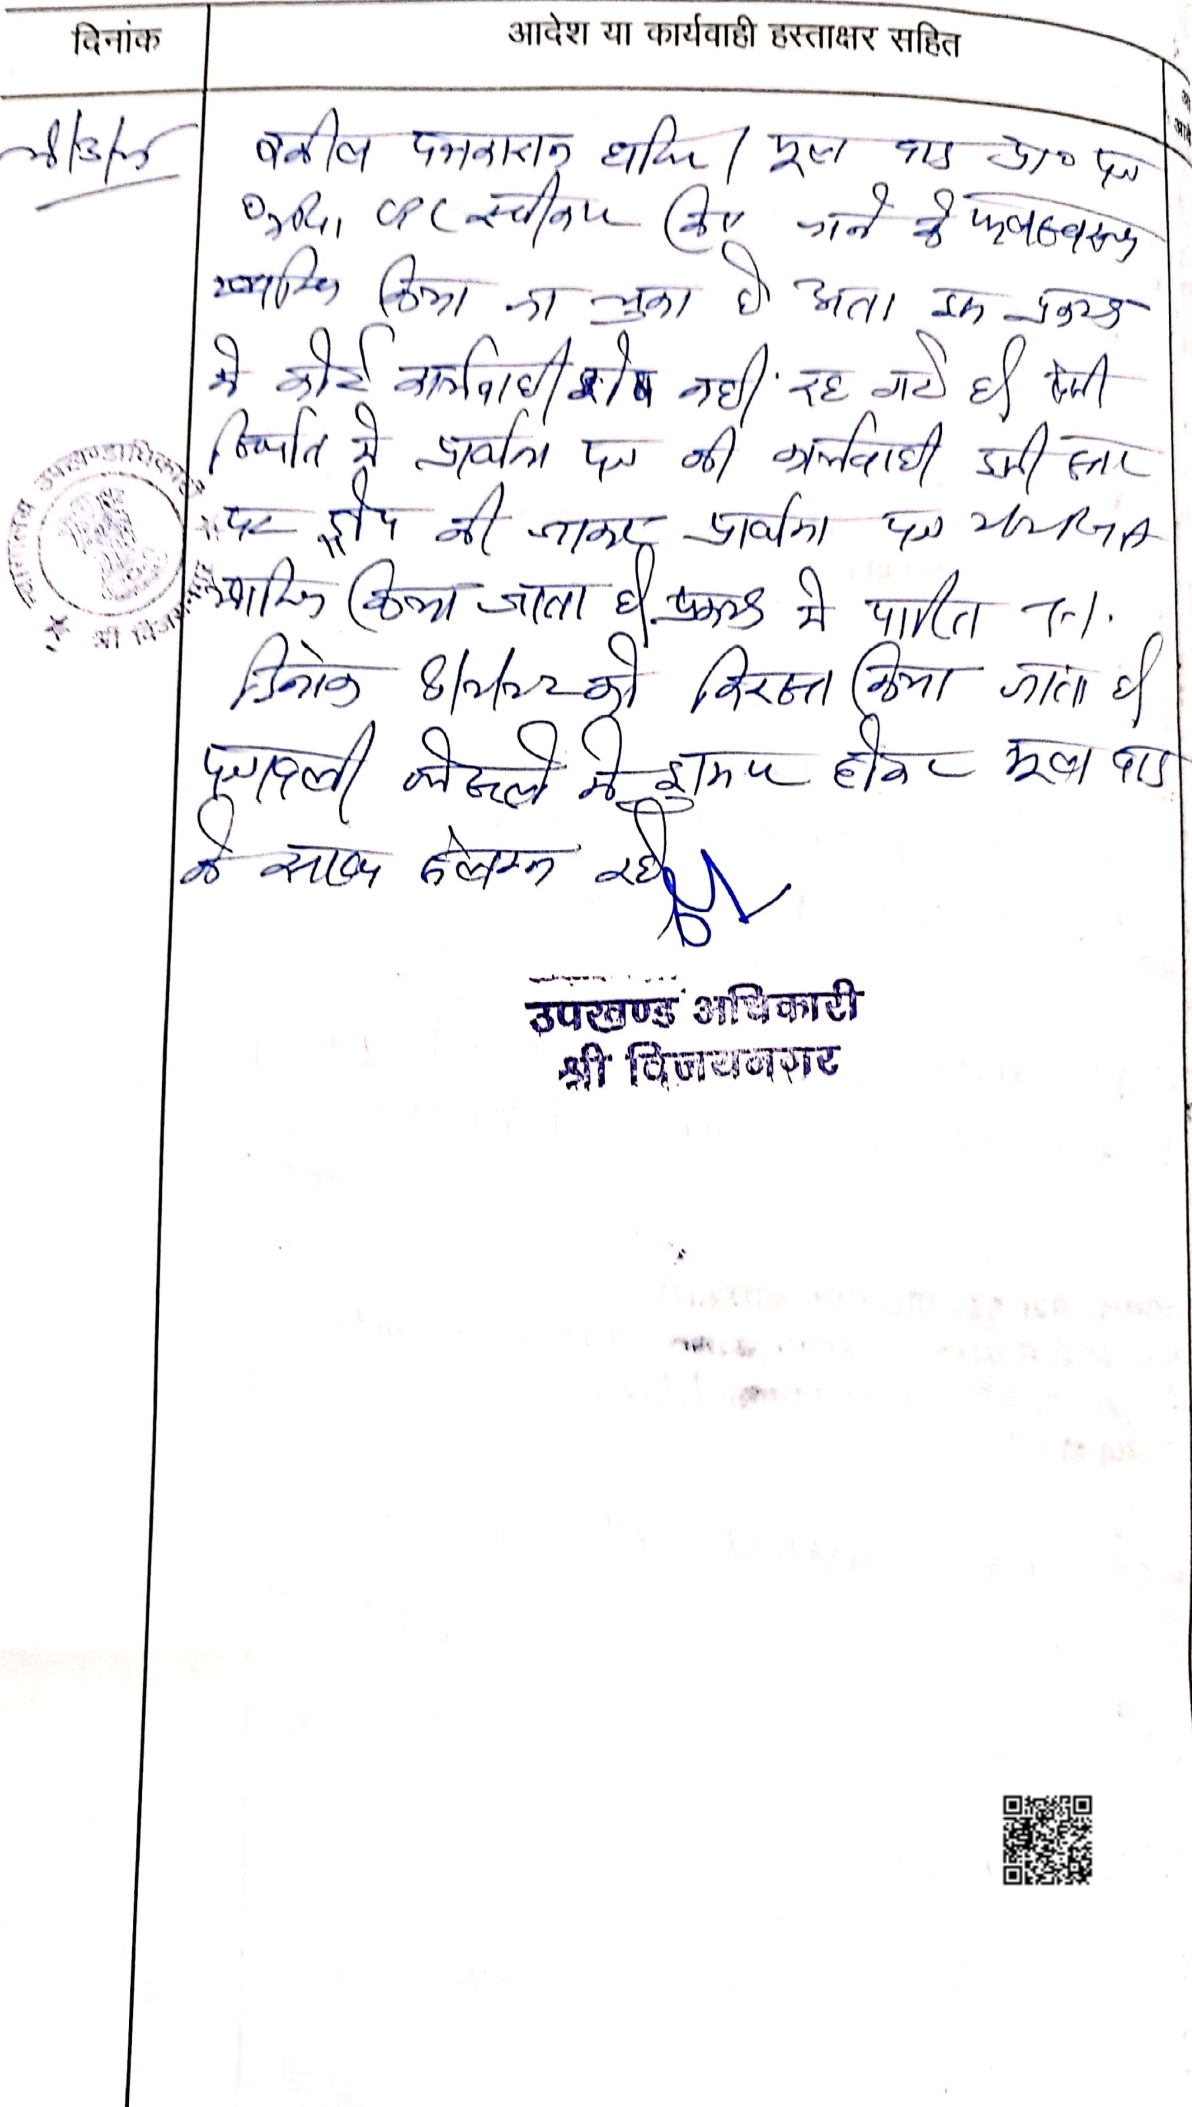 दिनांक
आदेश या कार्यवाही हस्ताक्षर सहित
वकील पक्षकारान् हाजिर। मूल वाद प्रा० पत्र
CPC स्वीकार किए जाने के फलस्वरूप
खारिज किया जा चुका है अतः इस प्रकरण
में कोई कार्यवाही शेष नहीं रह गई है। ऐसी
स्थिति में प्रार्थना पत्र की कार्यवाही इसी स्तर
पर ड्रोप की जाकर प्रार्थना पत्र
खारिज किया जाता है। प्रकरण में पारित
दिनांक को निरस्त किया जाता है।
पत्रावली फैसले में शुमार होकर मूल वाद
के साथ संलग्न रहे।
उपखण्ड अधिकारी
श्री विजयनगर